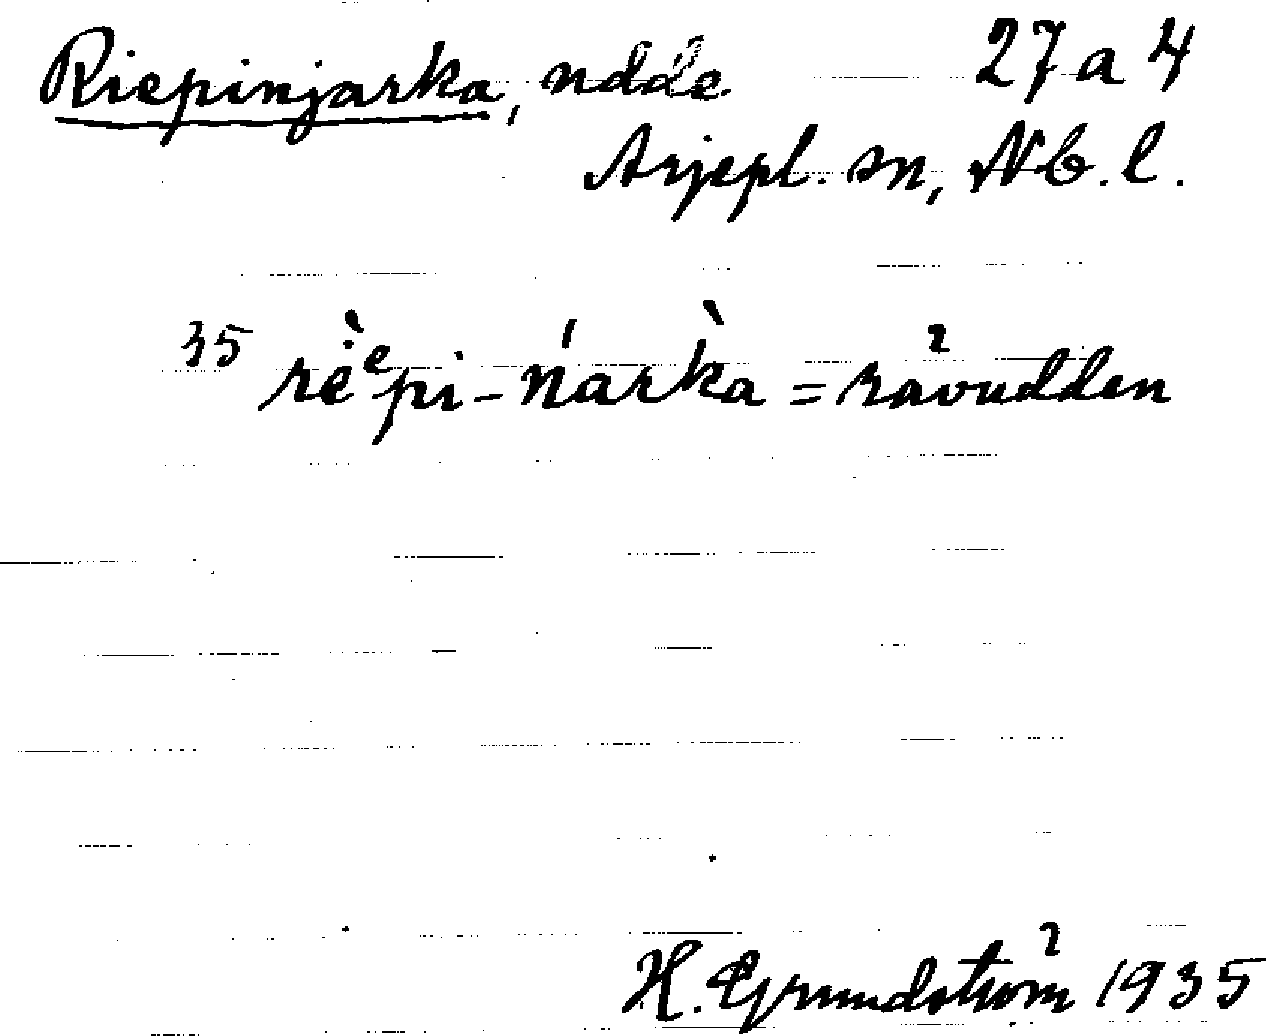 Riepinjarka, udde 27 a 4
Arjepl. sn, Nb. l.
35 rė̀ᵉpi-ńark̀a = rävudden
H. Grundström 1935